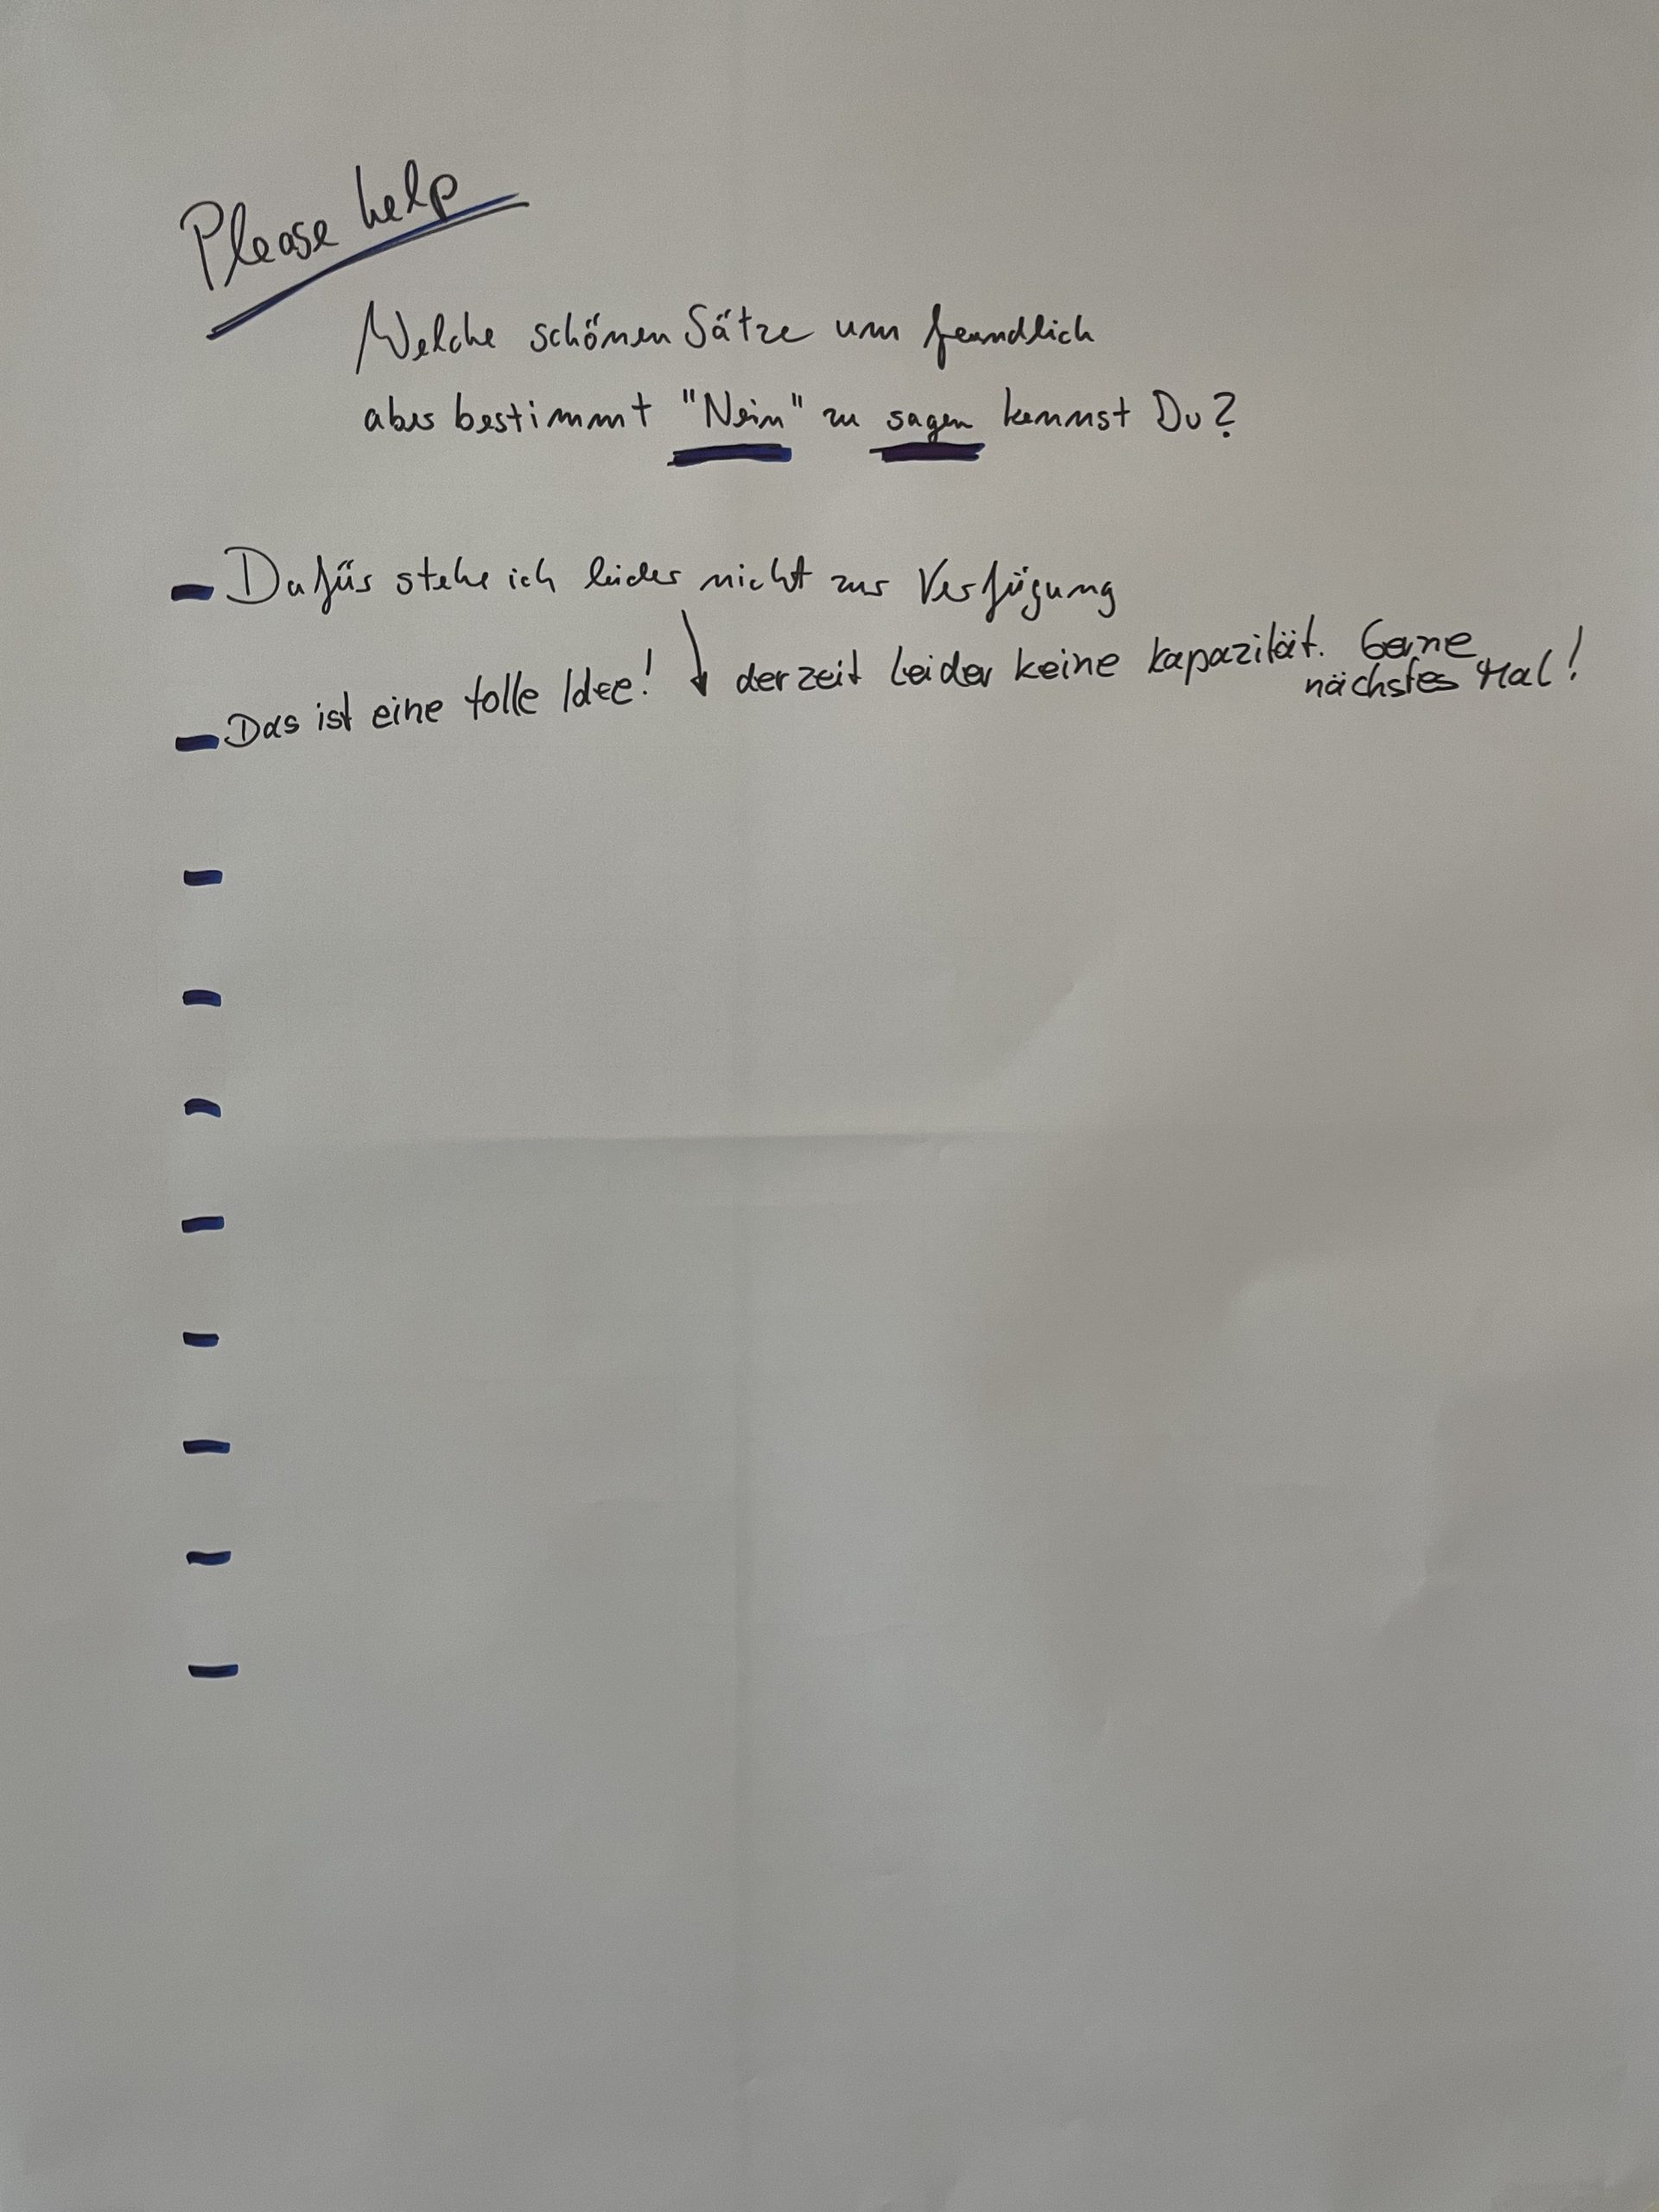 Please help
Welche schönen Sätze um freundlich
aber bestimmt "Nein" zu sagen kennst Du?
- Dafür stehe ich leider nicht zur Verfügung
- Das ist eine tolle Idee! ↓ derzeit leider keine Kapazität. Gerne
nächstes Mal!
-
-
-
-
-
-
-
-